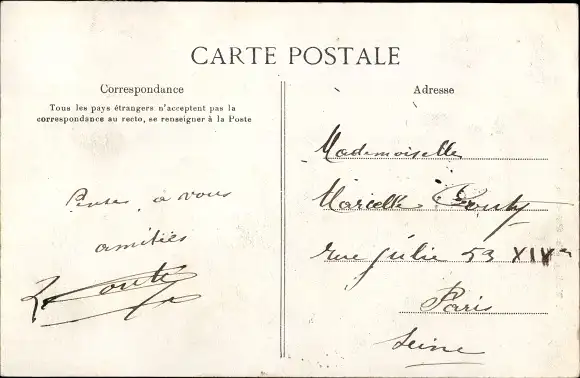 CARTE POSTALE
Correspondance
Tous les pays étrangers n'acceptent pas la
correspondance au recto, se renseigner à la Poste
à vous
amitiés
Adresse
Mademoiselle
Marcelle
rue Julie 53 XIVe
Paris
Seine